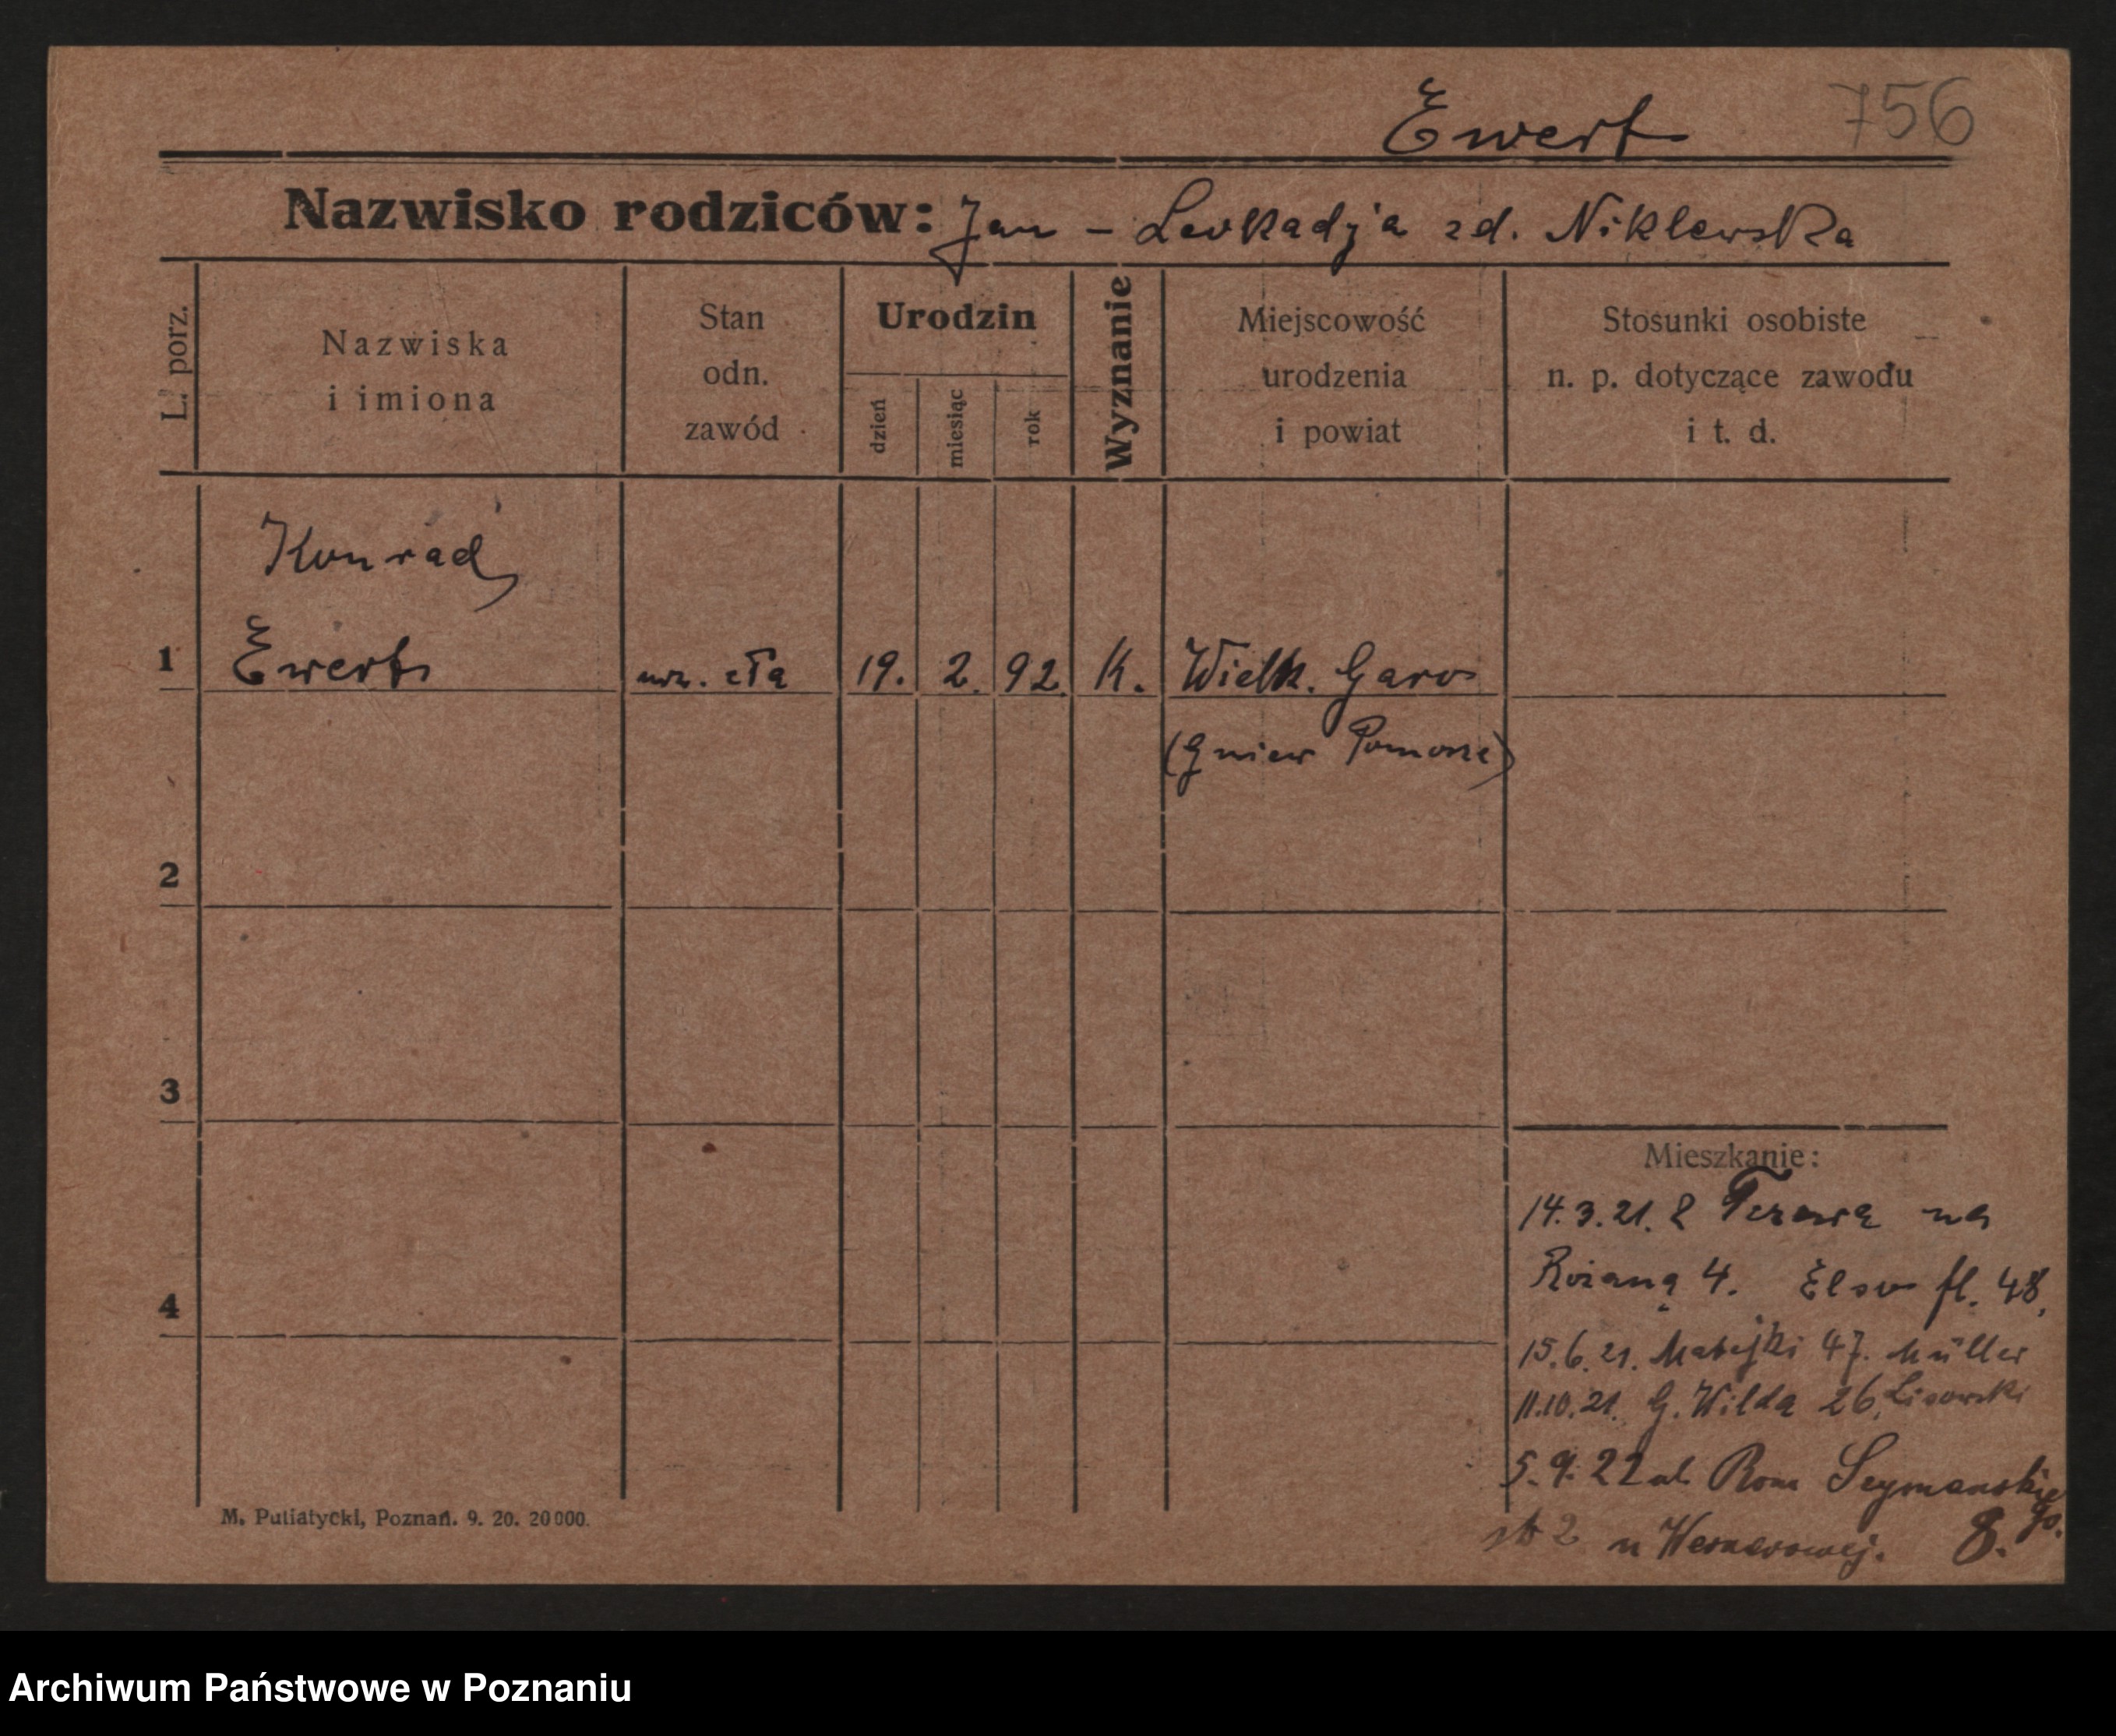 Ewert 756
Nazwisko rodziców: Jan - Leokadja zd. Niklewska
L. porz.
Nazwiska
i imiona
Stan
odn.
zawód
Urodzin
dzień
miesiąc
rok
Wyznanie
Miejscowość
urodzenia
i powiat
Stosunki osobiste
n. p. dotyczące zawodu
i t. d.
Konrad
1 Ewert 19. 2. 92. K. Wielk. Garo
(Gniew Pomorze)
2
3
4
Mieszkanie:
14.3.21. na
Różaną 4. fl. 48,
15.6.21. Matejki 47. Müller
11.10.21. G. Wilda 26, Lisowski
5.9.22 ul. Rom Szymańskiego
2 u Wernerowej. 8.
M. Putiatycki, Poznań. 9. 20. 20000.
Archiwum Państwowe w Poznaniu